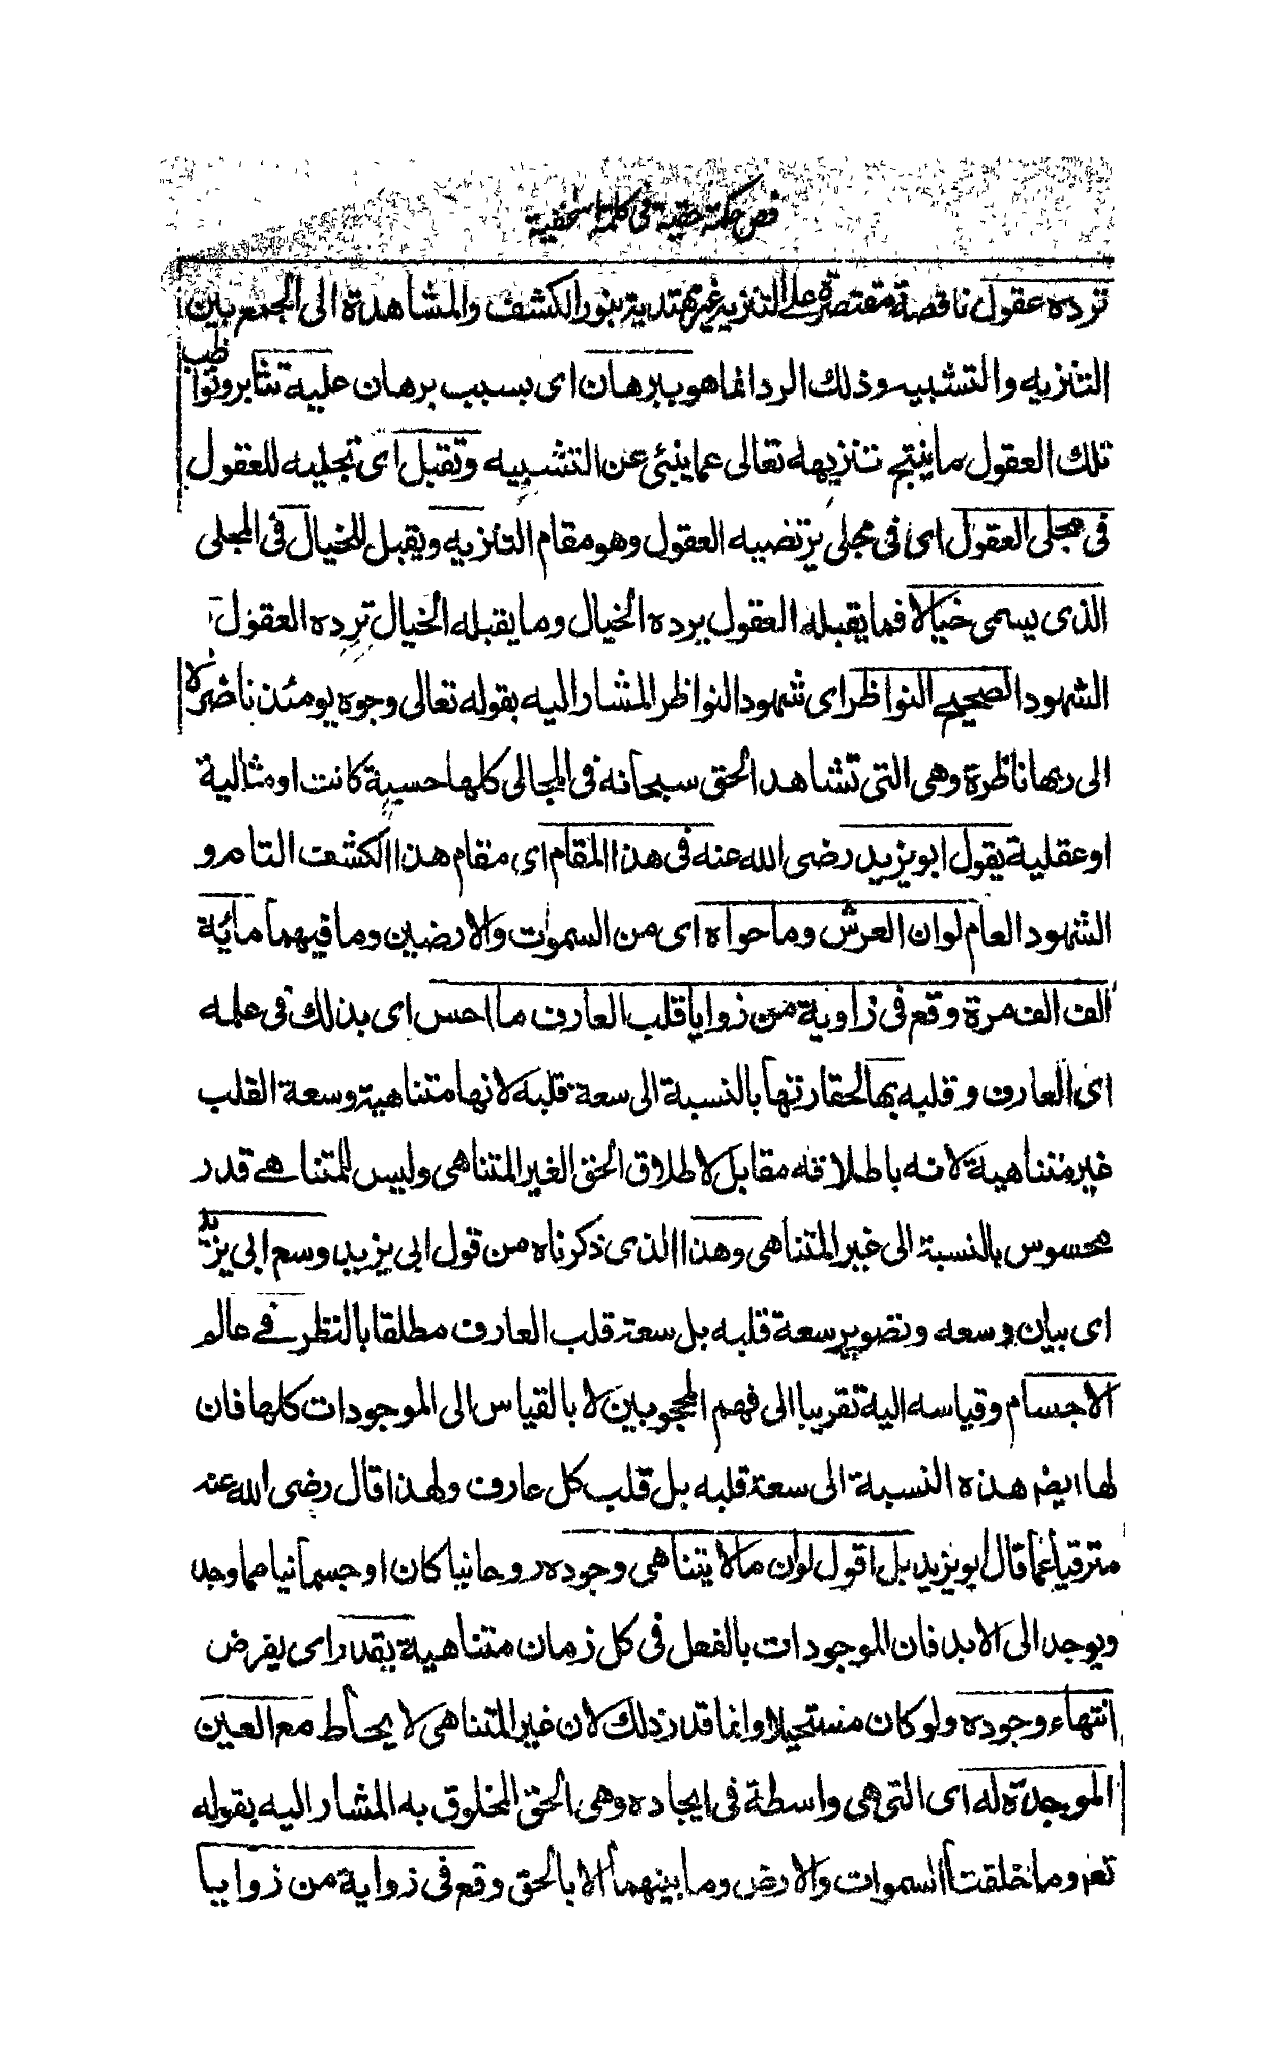 فص حكمة حقية فى كلمة اسحقية
ترده عقول ناقصة مقتصرة على التنزيه غير مهتدية بنور الكشف والمشاهدة الى الجمع بين
التنزيه والتشبيه وذلك الرد انما هو ببرهان اى بسبب برهان عليه تثابر وتواظب
تلك العقول ما ينتج تنزيهه تعالى عما ينبئ عن التشبيه وتقبل اى تجليه للعقول
فى مجلى العقول اى فى مجلى يرتضيه العقول وهو مقام التنزيه ويقبل للخيال فى المجلى
الذى يسمى خيالا فما يقبله العقول يرده الخيال وما يقبله الخيال ترده العقول
الشهود الصحيح النواظر اى شهود النواظر المشار اليه بقوله تعالى وجوه يومئذ ناضرة
الى ربها ناظرة وهى التى تشاهد الحق سبحانه فى المجالى كلها حسية كانت او مثالية
او عقلية يقول ابو يزيد رضى الله عنه فى هذا المقام اى مقام هذا الكشف التام و
الشهود العام لو ان العرش وما حواه اى من السموات والارضين وما فيهما مائة
الف الف مرة وقع فى زاوية من زوايا قلب العارف ما احس اى بذلك فى علمه
اى العارف وقلبه بها لحقارتها بالنسبة الى سعة قلبه لانها متناهية وسعة القلب
غير متناهية لانه باطلاقه مقابل لاطلاق الحق الغير المتناهى وليس للمتناهى قدر
محسوس بالنسبة الى غير المتناهى وهذا الذى ذكرناه من قول ابى يزيد وسع ابى يزيد
اى بيان وسعه وتصوير سعة قلبه بل سعة قلب العارف مطلقا بالنظر فى عالم
الاجسام وقياسه اليه تقريبا الى فهم المحجوبين لا بالقياس الى الموجودات كلها فان
لها ايضر هذه النسبة الى سعة قلبه بل قلب كل عارف ولهذا قال رضى الله عنه
مترقيا عما قال ابو يزيد بل اقول لو ان ما لا يتناهى وجوده روحانيا كان او جسمانيا مما وجد
ويوجد الى الابد فان الموجودات بالفعل فى كل زمان متناهية يقدر اى يفرض
انتهاء وجوده ولو كان مستحيلا وانما قدر ذلك لان غير المتناهى لا يحاط مع العين
الموجدة له اى التى هى واسطة فى ايجاده وهى الحق المخلوق به المشار اليه بقوله
تعم وما خلقت السموات والارض وما بينهما الا بالحق وقع فى زواية من زوايا